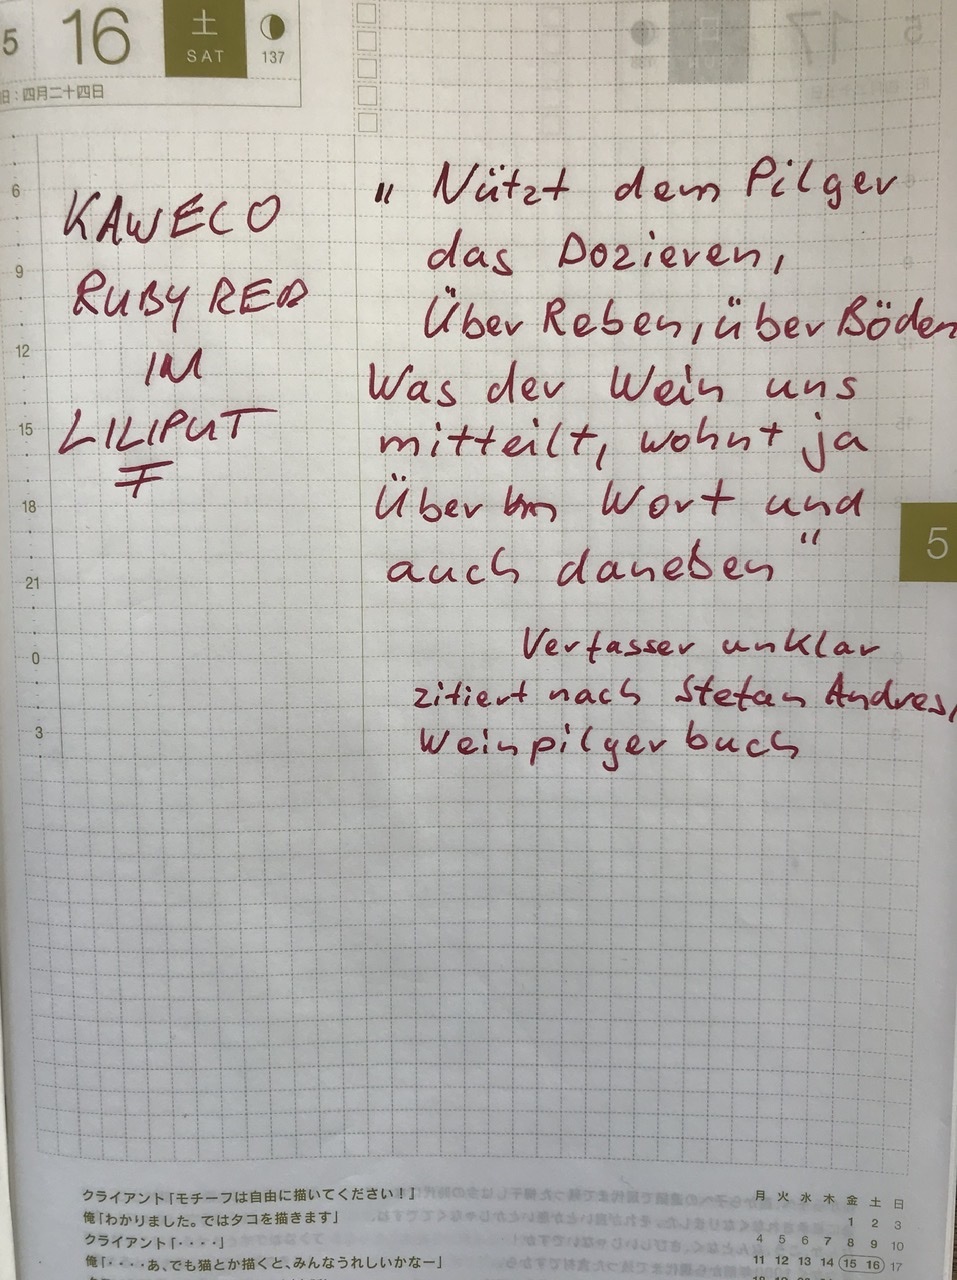 5 16 土 SAT 137
旧：四月二十四日
KAWECO
RUBY RED
IM
LILIPUT
F
"Nützt dem Pilger
das Dozieren,
Über Reben, über Böden
Was der Wein uns
mitteilt, wohnt ja
Über Wort und
auch daneben"
Verfasser unklar
zitiert nach Stefan Andres,
Weinpilgerbuch
6
9
12
15
18
21
0
3
5
クライアント「モチーフは自由に描いてください！」
俺「わかりました。ではタコを描きます」
クライアント「・・・・」
俺「・・・・あ、でも猫とか描くと、みんなうれしいかなー」
月 火 水 木 金 土 日
1 2 3
4 5 6 7 8 9 10
11 12 13 14 15 16 17